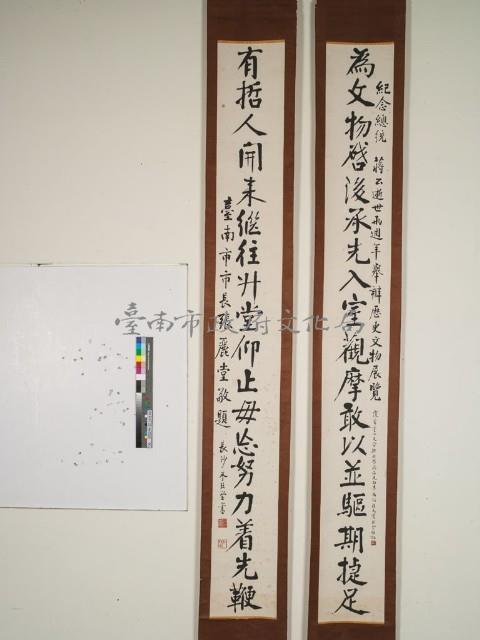 為文物啓後承先入室觀摩敢以並驅期捷足
紀念總統 蔣公逝世兩週年舉辦歷史文物展覽
有哲人開來繼往升堂仰止毋忘努力着先鞭
臺南市市長張麗堂敬題
長沙
書
臺南市政府文化局